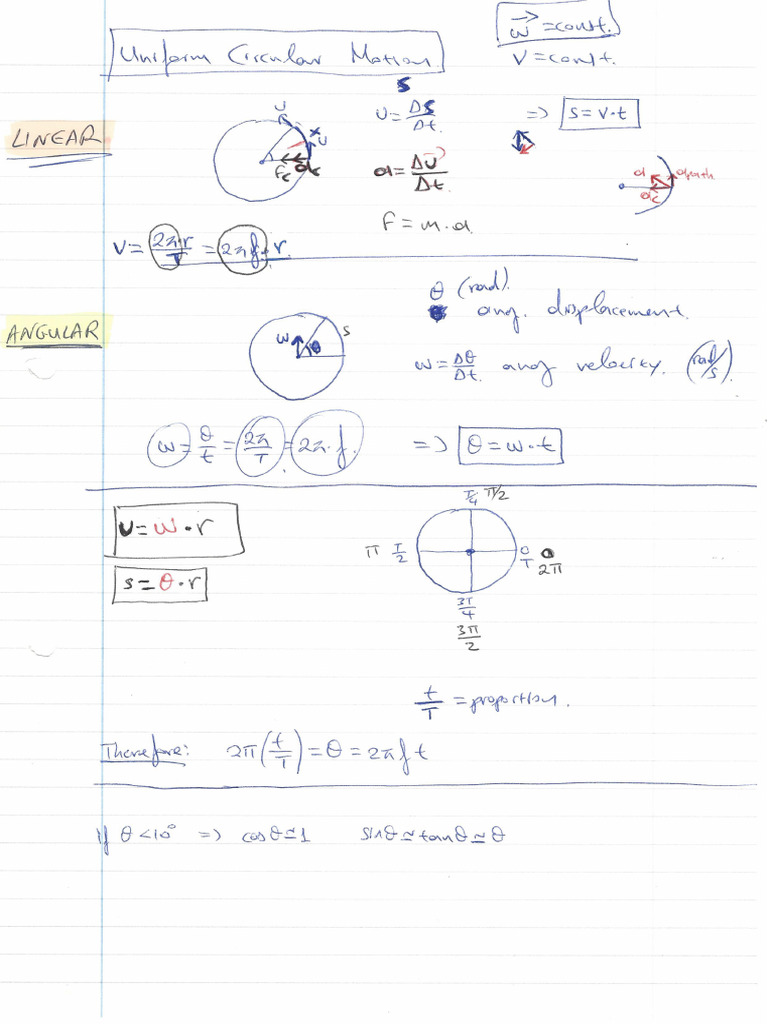 Uniform Circular Motion.
→ω = const.
v = const.
LINEAR
s
υ = Δs/Δt. => s = v·t
υ x υ
Fc αc
α = Δυ/Δt.
α αpath
αc
F = m·α
v = 2π·r/T = 2πf·r.
θ (rad).
ang. displacement.
ANGULAR
ω θ s
ω = Δθ/Δt. ang velocity. (rad/s).
ω = θ/t = 2π/T = 2π·f. => θ = ω·t
υ = ω·r
s = θ·r
T/4 π/2
π T/2 0/T 0 2π
3T/4
3π/2
t/T = proportion.
Therefore: 2π(t/T) = θ = 2πft
If θ<10° => cosθ≃1 sinθ≃tanθ≃θ